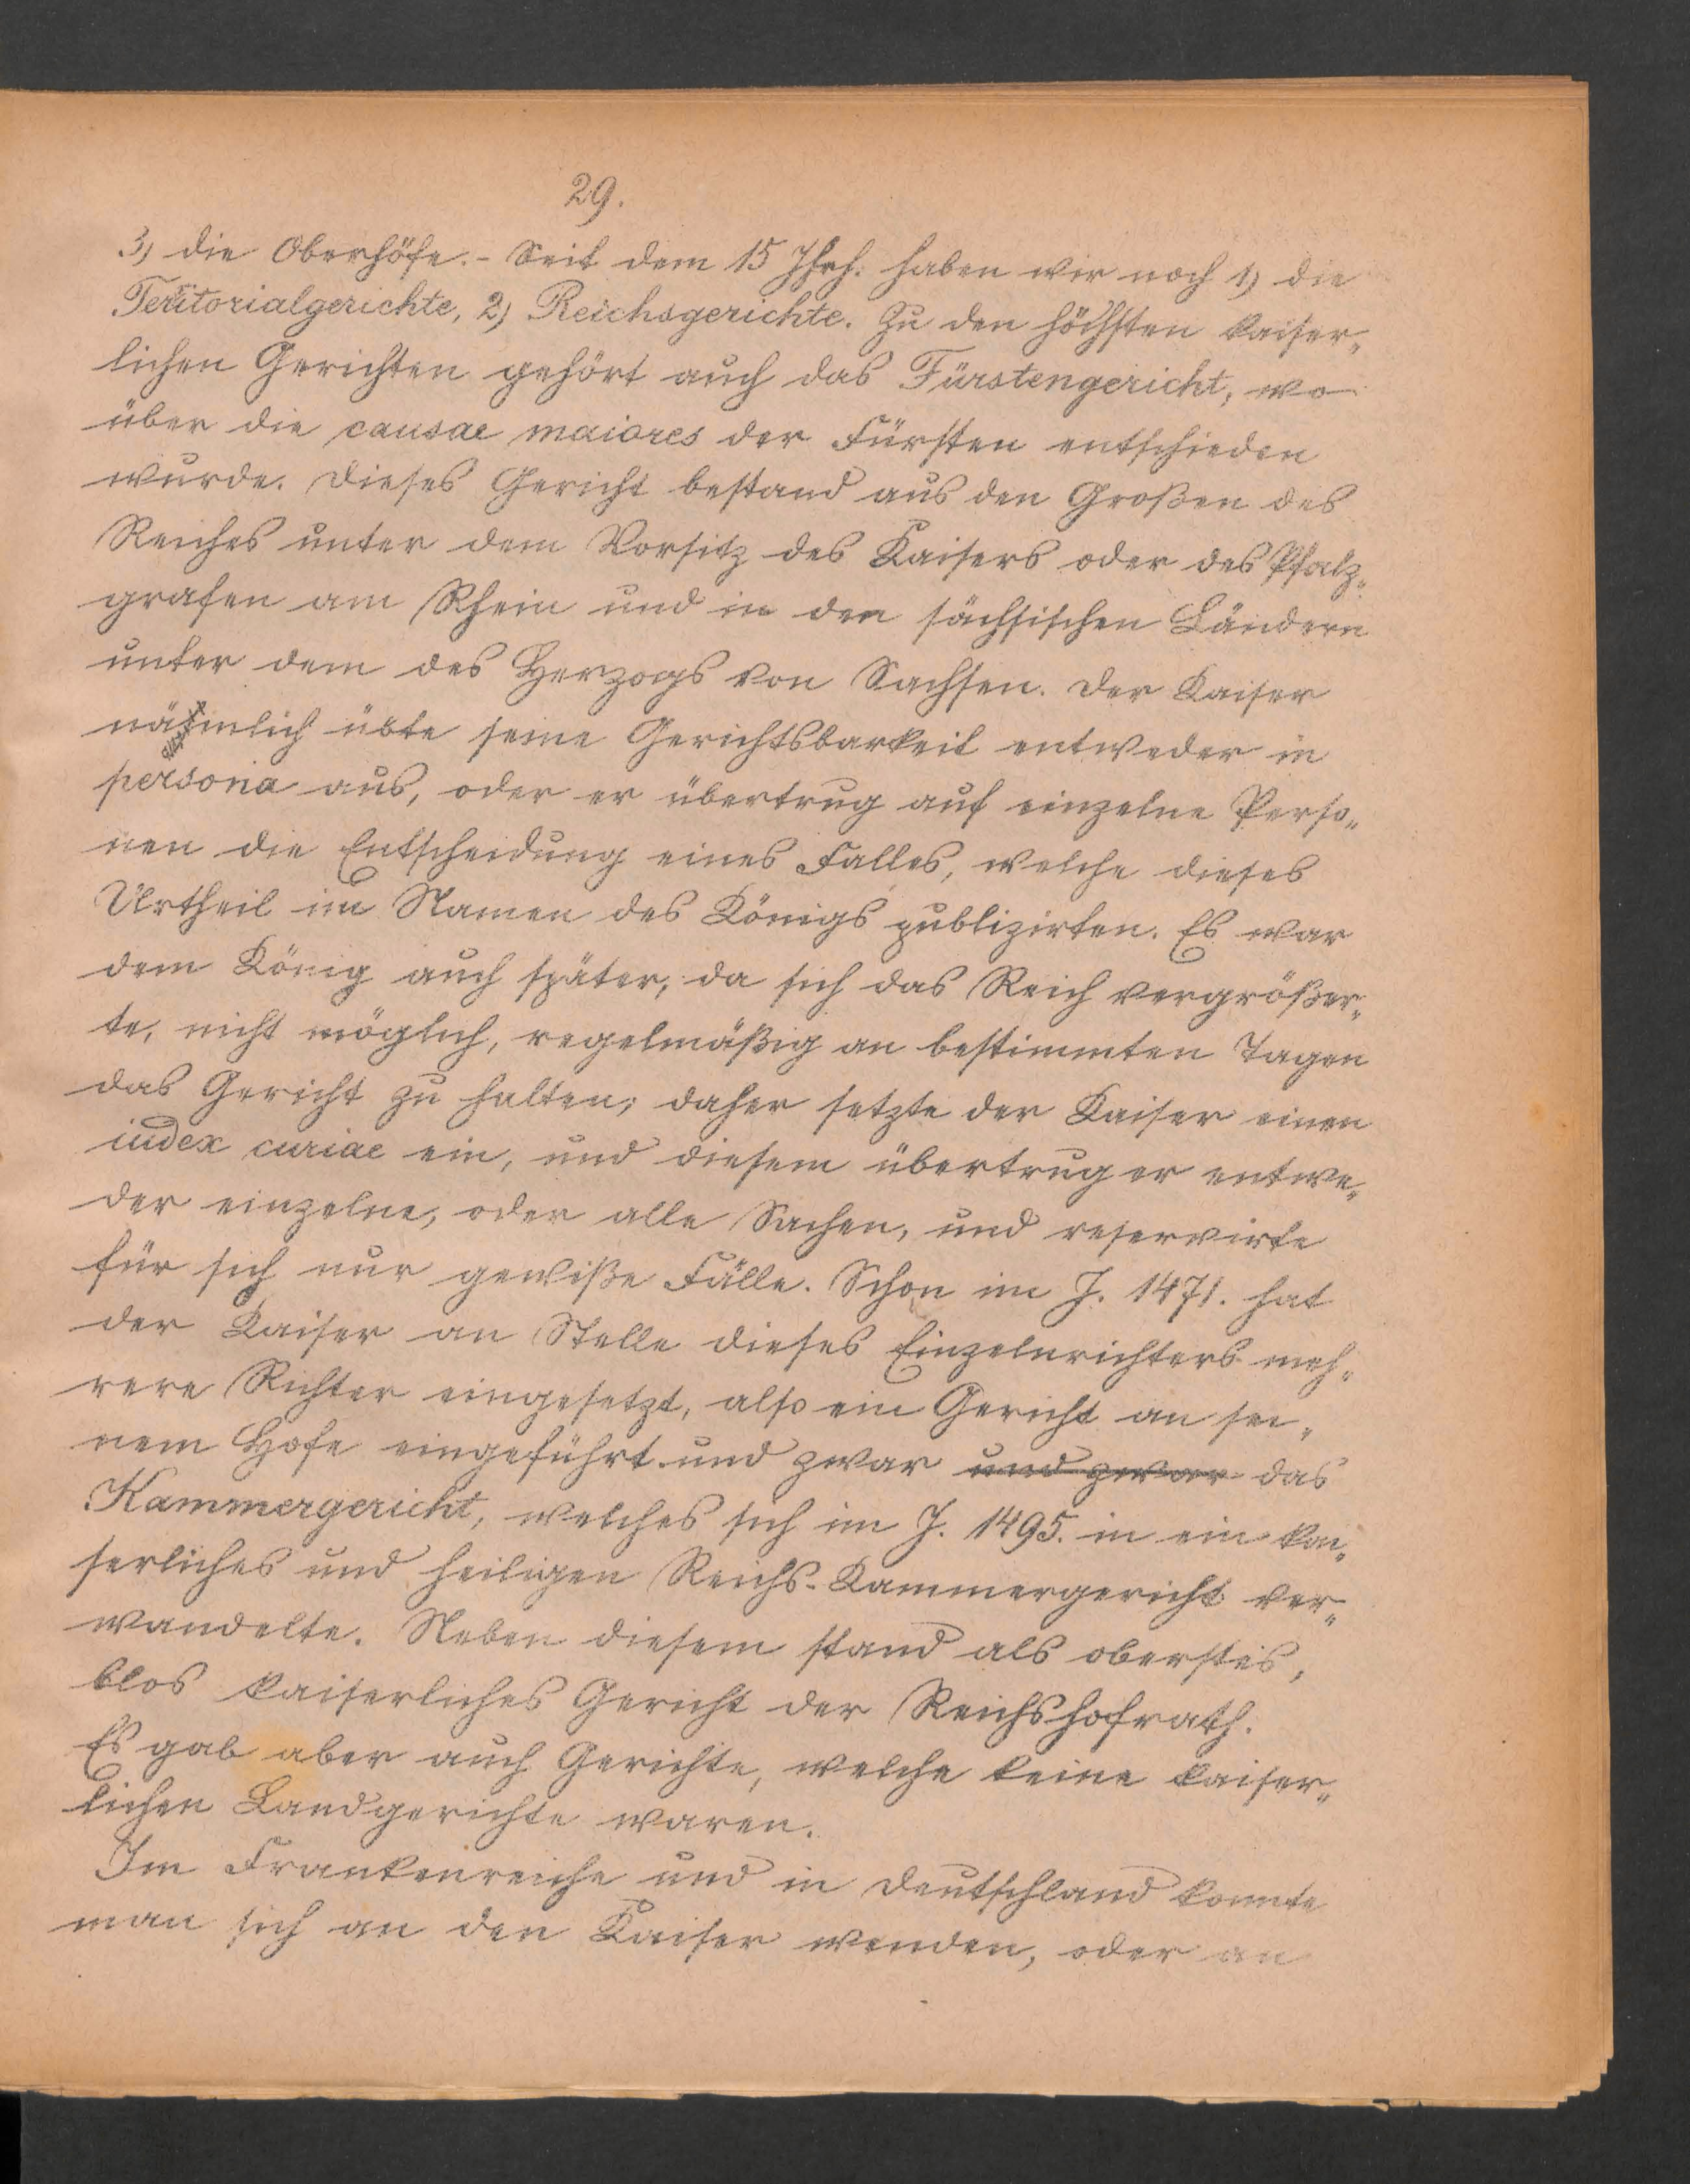 29.
3) die Oberhöfe. - Seit dem 15 Jhrh. haben wir noch 1) die
Territorialgerichte, 2) Reichsgerichte. Zu den höchsten kaiser„
lichen Gerichten gehört auch das Fürstengericht, wo
über die causae maiores der Fürsten entschieden
wurde. Dieses Gericht bestand aus den Großen des
Reiches unter dem Vorsitz des Kaisers oder des Pfalz„
grafen am Rhein und in den sächsischen Ländern
unter dem des Herzogs von Sachsen. Der Kaiser
nämlich übte seine Gerichtsbarkeit entweder in
persona aus, oder er übertrug auf einzelne Perso„
nen die Entscheidung eines Falles, welche dieses
Urtheil im Namen des Königs publizirten. Es war
dem König auch später, da sich das Reich vergrößer„
te, nicht möglich, regelmäßig an bestimmten Tagen
das Gericht zu halten; daher setzte der Kaiser einen
iudex curiae ein, und diesem übertrug er entwe„
der einzelne, oder alle Sachen, und reservirte
für sich nur gewiße Fälle. Schon im J. 1471. hat
der Kaiser an Stelle dieses Einzelnrichters meh„
rere Richter eingesetzt, also ein Gericht an sei„
nem Hofe eingeführt und zwar und zwar das
Kammergericht, welches sich im J. 1495. in ein kai„
serliches und heiligen Reichs-Kammergericht ver„
wandelte. Neben diesem stand als oberstes,
blos kaiserliches Gericht der Reichshofrath.
Es gab aber auch Gerichte, welche keine kaiser„
lichen Landgerichte waren.
Im Frankenreiche und in Deutschland konnte
man sich an den Kaiser wenden, oder an